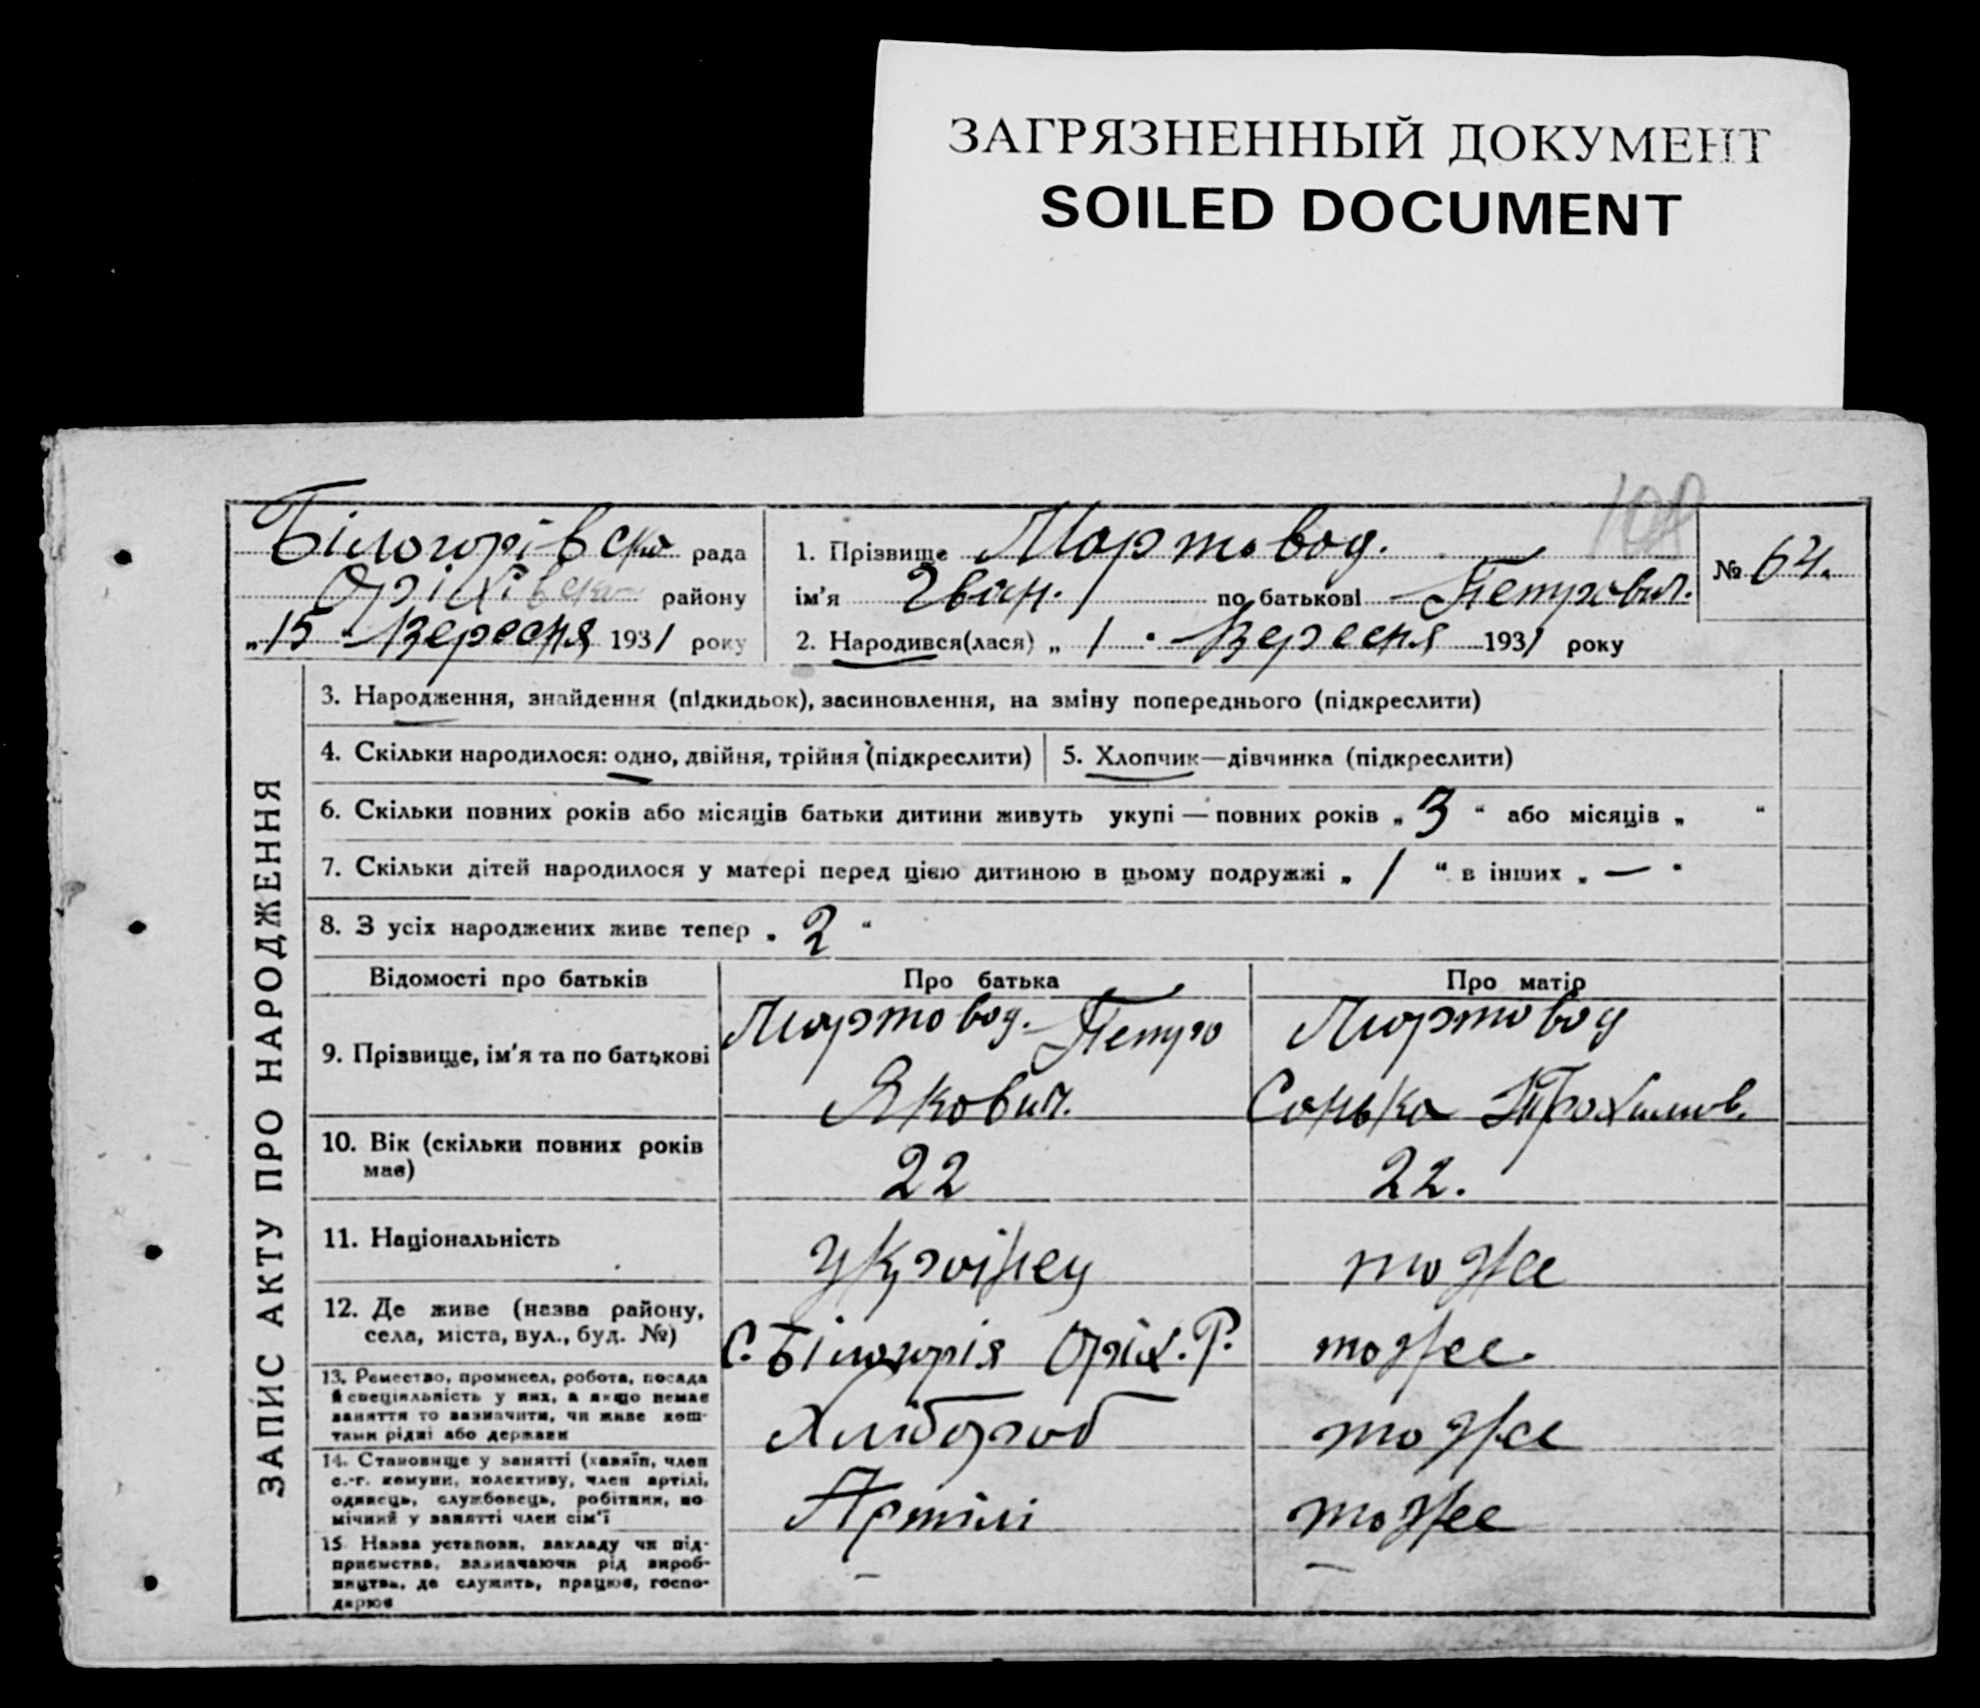 ЗАГРЯЗНЕННЫЙ ДОКУМЕНТ
SOILED DOCUMENT
Білогорівська рада
Оріхівськ району
„15" Вересня 1931 року
1. Прізвище Мартовод.
ім'я Іван. по батькові Петрович.
2. Народився(лася) „1" Вересня 1931 року
№ 64.
ЗАПИС АКТУ ПРО НАРОДЖЕННЯ
3. Народження, знайдення (підкидьок), засиновлення, на зміну попереднього (підкреслити)
4. Скільки народилося: одно, двійня, трійня (підкреслити)
5. Хлопчик—дівчинка (підкреслити)
6. Скільки повних років або місяців батьки дитини живуть укупі — повних років „3" або місяців „ "
7. Скільки дітей народилося у матері перед цією дитиною в цьому подружжі „1" в інших „—"
8. З усіх народжених живе тепер „2"
Відомості про батьків Про батька Про матір
9. Прізвище, ім'я та по батькові
Мартовод. Петро
Якович.
Мартовод
Сонька Трохимов.
10. Вік (скільки повних років
має)
22
22.
11. Національність
Українец
тоже
12. Де живе (назва району,
села, міста, вул., буд. №)
с. Білогорія Оріх. Р.
тоже
13. Ремество, промисел, робота, посада
й спеціяльність у них, а якщо немає
заняття то зазначити, чи живе кош-
тами рідні або держави
Хлібороб
тоже
14. Становище у занятті (хазяїн, член
с.-г. комуни, колективу, член артілі,
одинець, службовець, робітник, по-
мічний у занятті член сім'ї
Артілі
тоже
15 Назва установи, закладу чи під-
приємства, зазначаючи рід вироб-
ництва, де служить, працює, госпо-
дарює
–
–